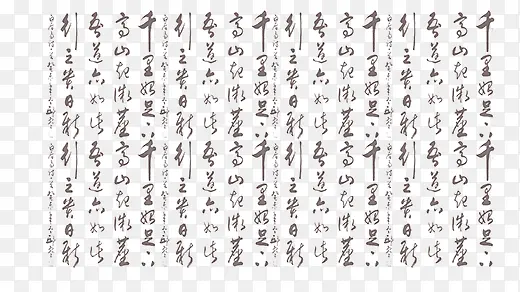 千里始足下千里始足下
高山起微塵高山起微塵
吾道亦如此吾道亦如此
行之貴日新行之貴日新
千里始足下千里始足下
高山起微塵高山起微塵
吾道亦如此吾道亦如此
行之貴日新行之貴日新
千里始足下千里始足下
高山起微塵高山起微塵
吾道亦如此吾道亦如此
行之貴日新行之貴日新
千里始足下千里始足下
高山起微塵高山起微塵
吾道亦如此吾道亦如此
行之貴日新行之貴日新